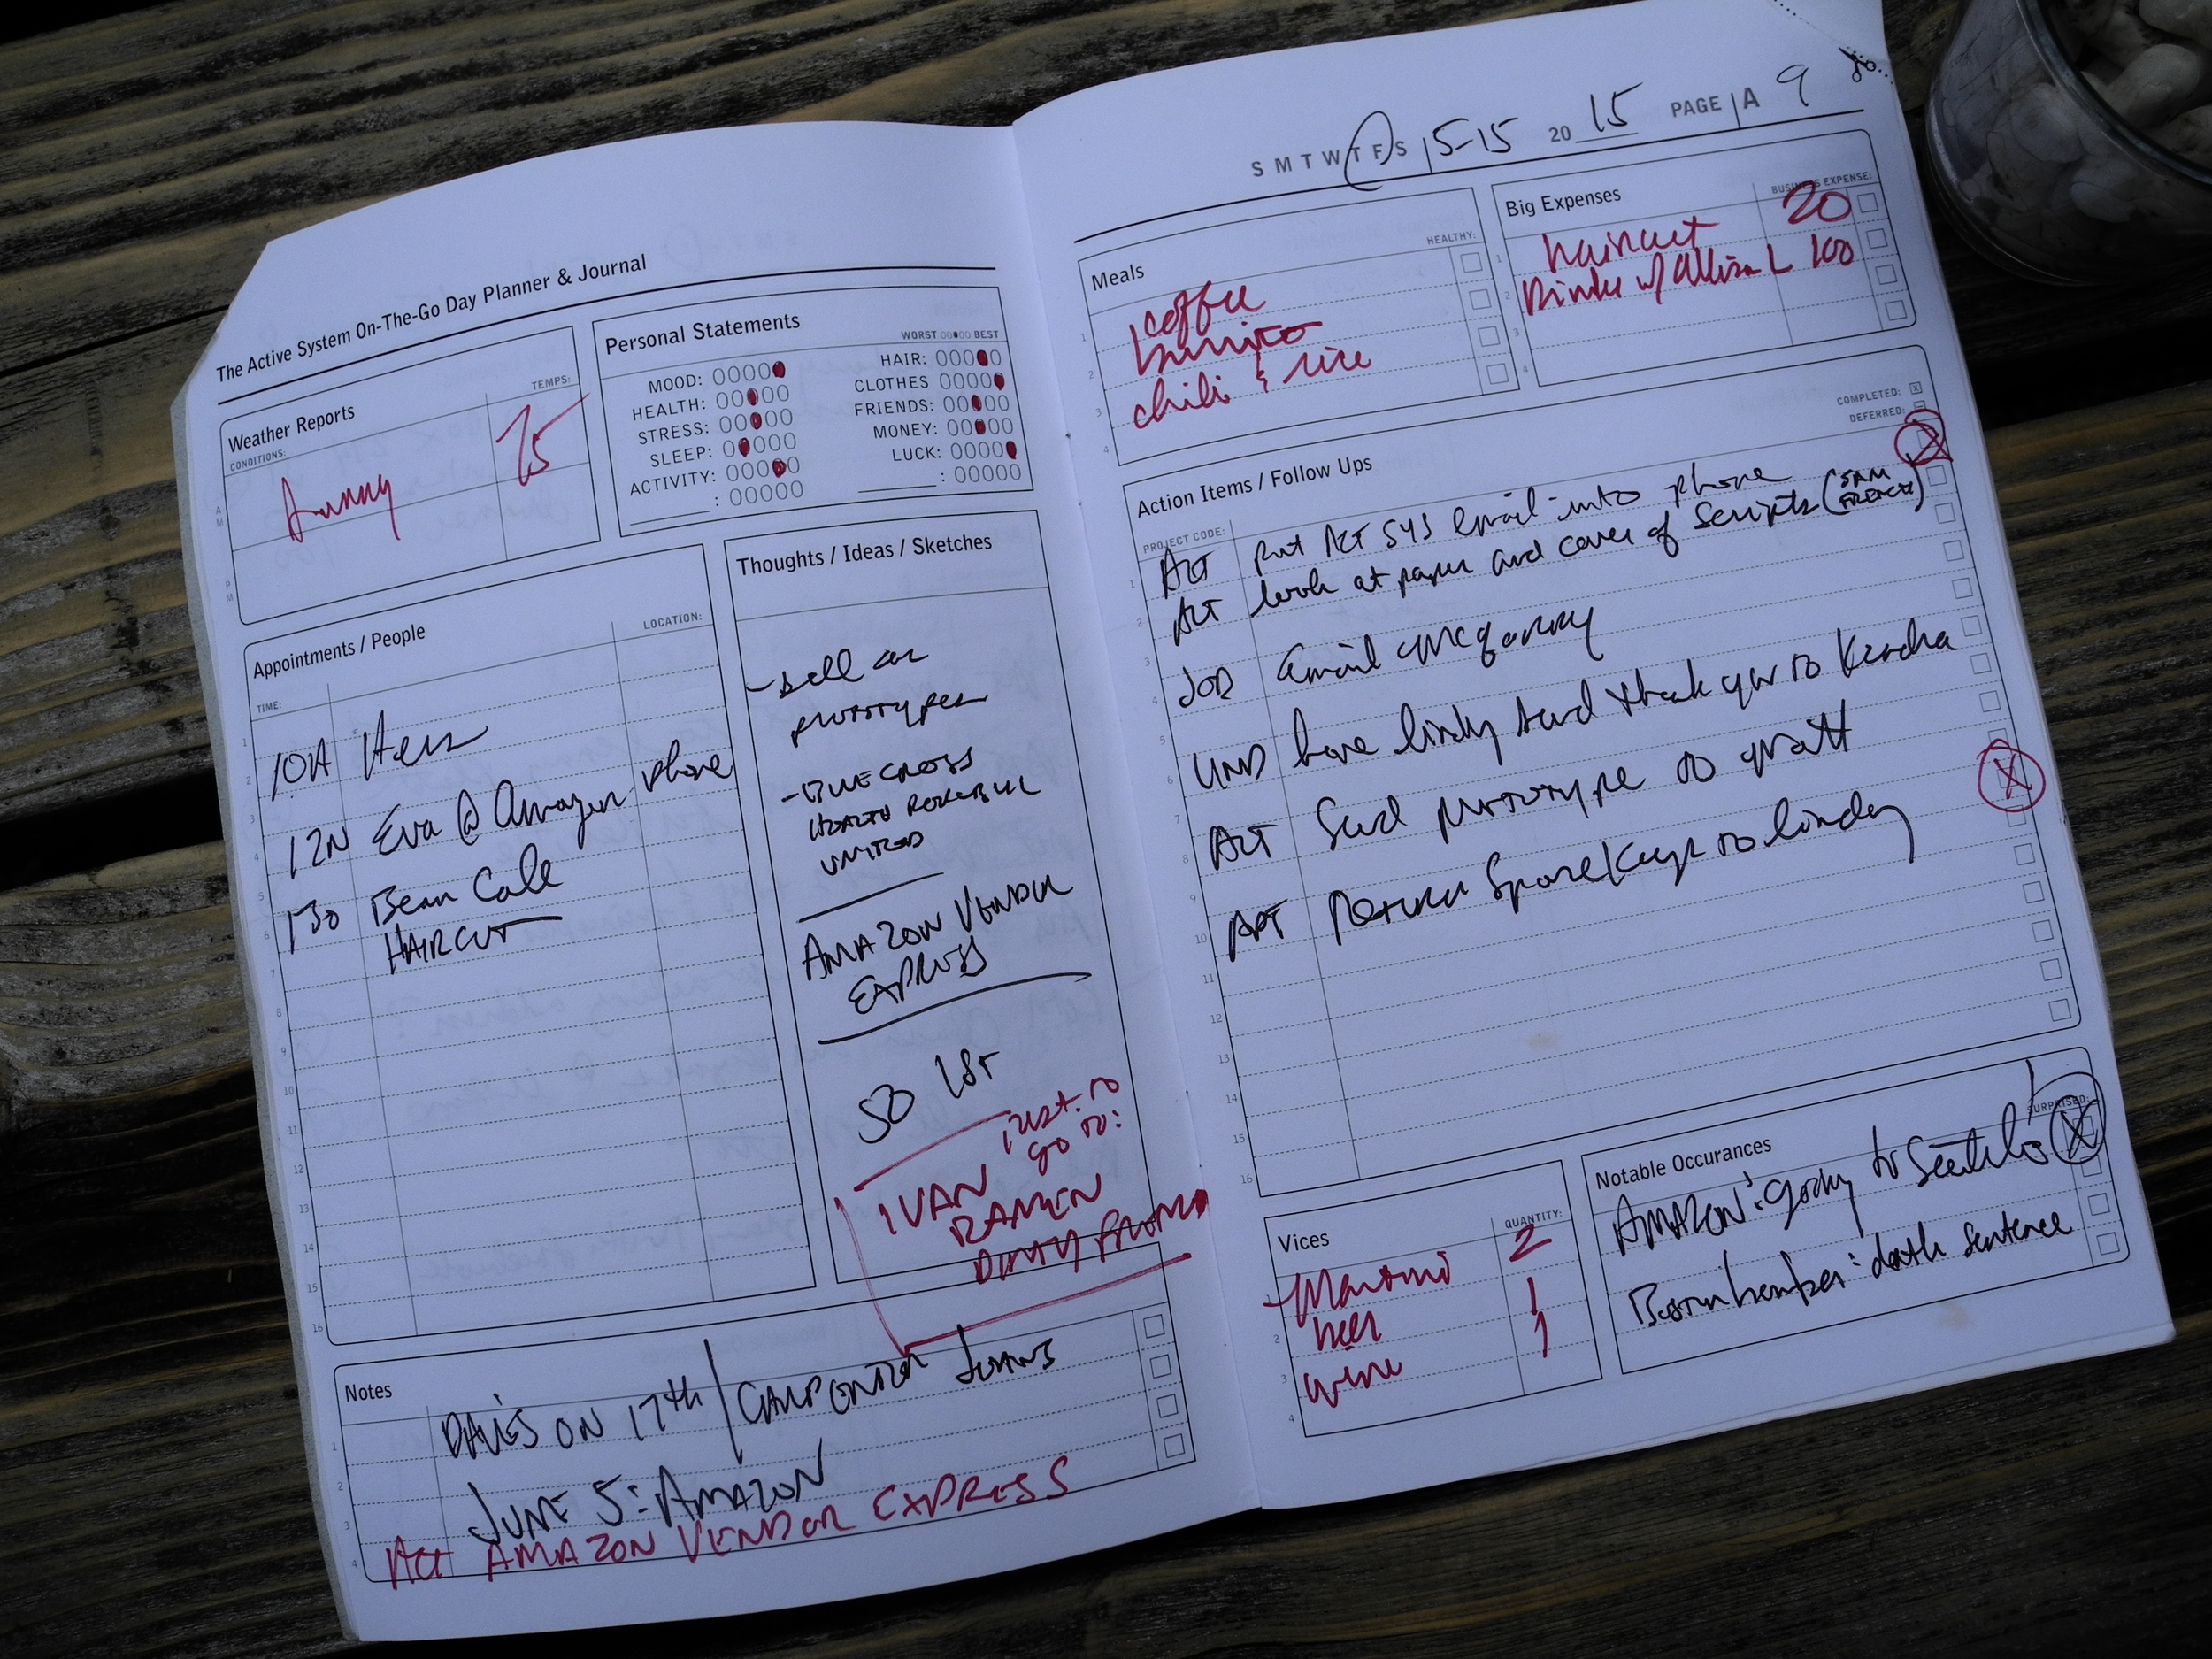 The Active System On-The-Go Day Planner & Journal
Weather Reports
CONDITIONS:
TEMPS:
AM
Sunny
75
PM
Personal Statements
WORST 00000 BEST
MOOD: 00000
HEALTH: 00000
STRESS: 00000
SLEEP: 00000
ACTIVITY: 00000
: 00000
HAIR: 00000
CLOTHES 00000
FRIENDS: 00000
MONEY: 00000
LUCK: 00000
: 00000
Appointments / People
TIME:
LOCATION:
10A
12N Eva @ Amazon phone
130 Bean Call
HAIRCUT
1
2
3
4
5
6
7
8
9
10
11
12
13
14
15
16
Thoughts / Ideas / Sketches
- sell on
prototypes
- BLUE CROSS
HEALTH REPUBLIC
UNITED
AMAZON VENDOR
EXPRESS
50 LST
just to
go to:
IVAN
RAMEN
DIRTY FRENCH
Notes
1
2
3
4
DAVIS ON 17th / CARPENTER JEANS
JUNE 5: AMAZON
ACT AMAZON VENDOR EXPRESS
S M T W T F S 5-15 20 15 PAGE A 9
Meals
HEALTHY:
1 coffee
2 burrito
3 chili & rice
4
Big Expenses
BUSINESS EXPENSE:
1 haircut 20
2 Drinks w/ Allison L 100
3
4
Action Items / Follow Ups
COMPLETED: X
DEFERRED: –
PROJECT CODE:
ACT put ACT SYS email into phone
ACT look at paper and cover of Scripts (SAM FRENCH)
JOB email
UND have lindy send thank you to Kendra
ACT Send prototype to Matt
APT Return Spare Keys to lindy
X
X
1
2
3
4
5
6
7
8
9
10
12
13
14
15
16
Vices
QUANTITY:
1 Martini 2
2 beer 1
3 wine 1
4
Notable Occurances
SURPRISED:
AMAZON: going to Seattle X
: death sentence